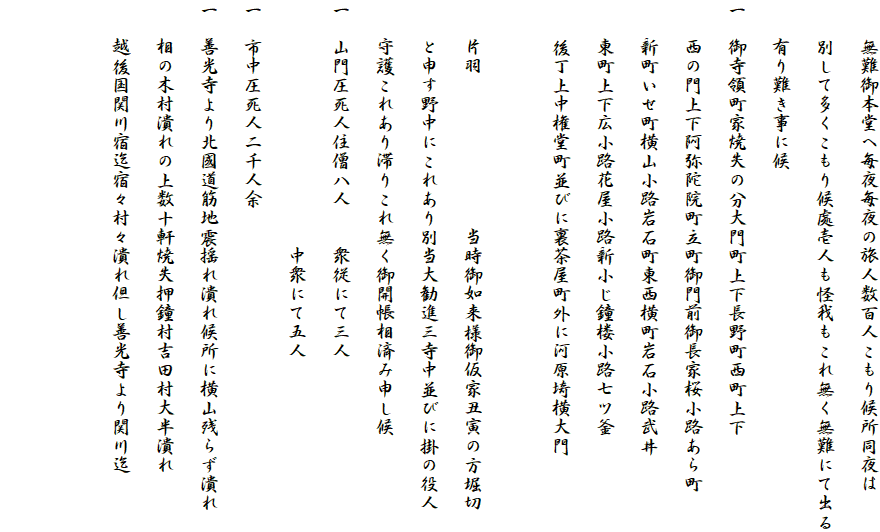 無難御本堂へ毎夜毎夜の旅人数百人こもり候所同夜は
別して多くこもり候處壱人も怪我もこれ無く無難にて出る
有り難き事に候
一 御寺領町家焼失の分大門町上下長野町西町上下
西の門上下阿弥陀院町立町御門前御長家桜小路あら町
新町いせ町横山小路岩石町東西横町岩石小路武井
東町上下広小路花屋小路新小じ鐘楼小路七ツ釜
後丁上中権堂町並びに裏茶屋町外に河原埼横大門
片羽 当時御如来様御仮家丑寅の方堀切
と申す野中にこれあり別当大勧進三寺中並びに掛の役人
守護これあり滞りこれ無く御開帳相済み申し候
一 山門圧死人住僧八人 衆従にて三人
中衆にて五人
一 市中圧死人二千人余
一 善光寺より北國道筋地震揺れ潰れ候所に横山残らず潰れ
相の木村潰れの上数十軒焼失押鐘村吉田村大半潰れ
越後国関川宿迄宿々村々潰れ但し善光寺より関川迄